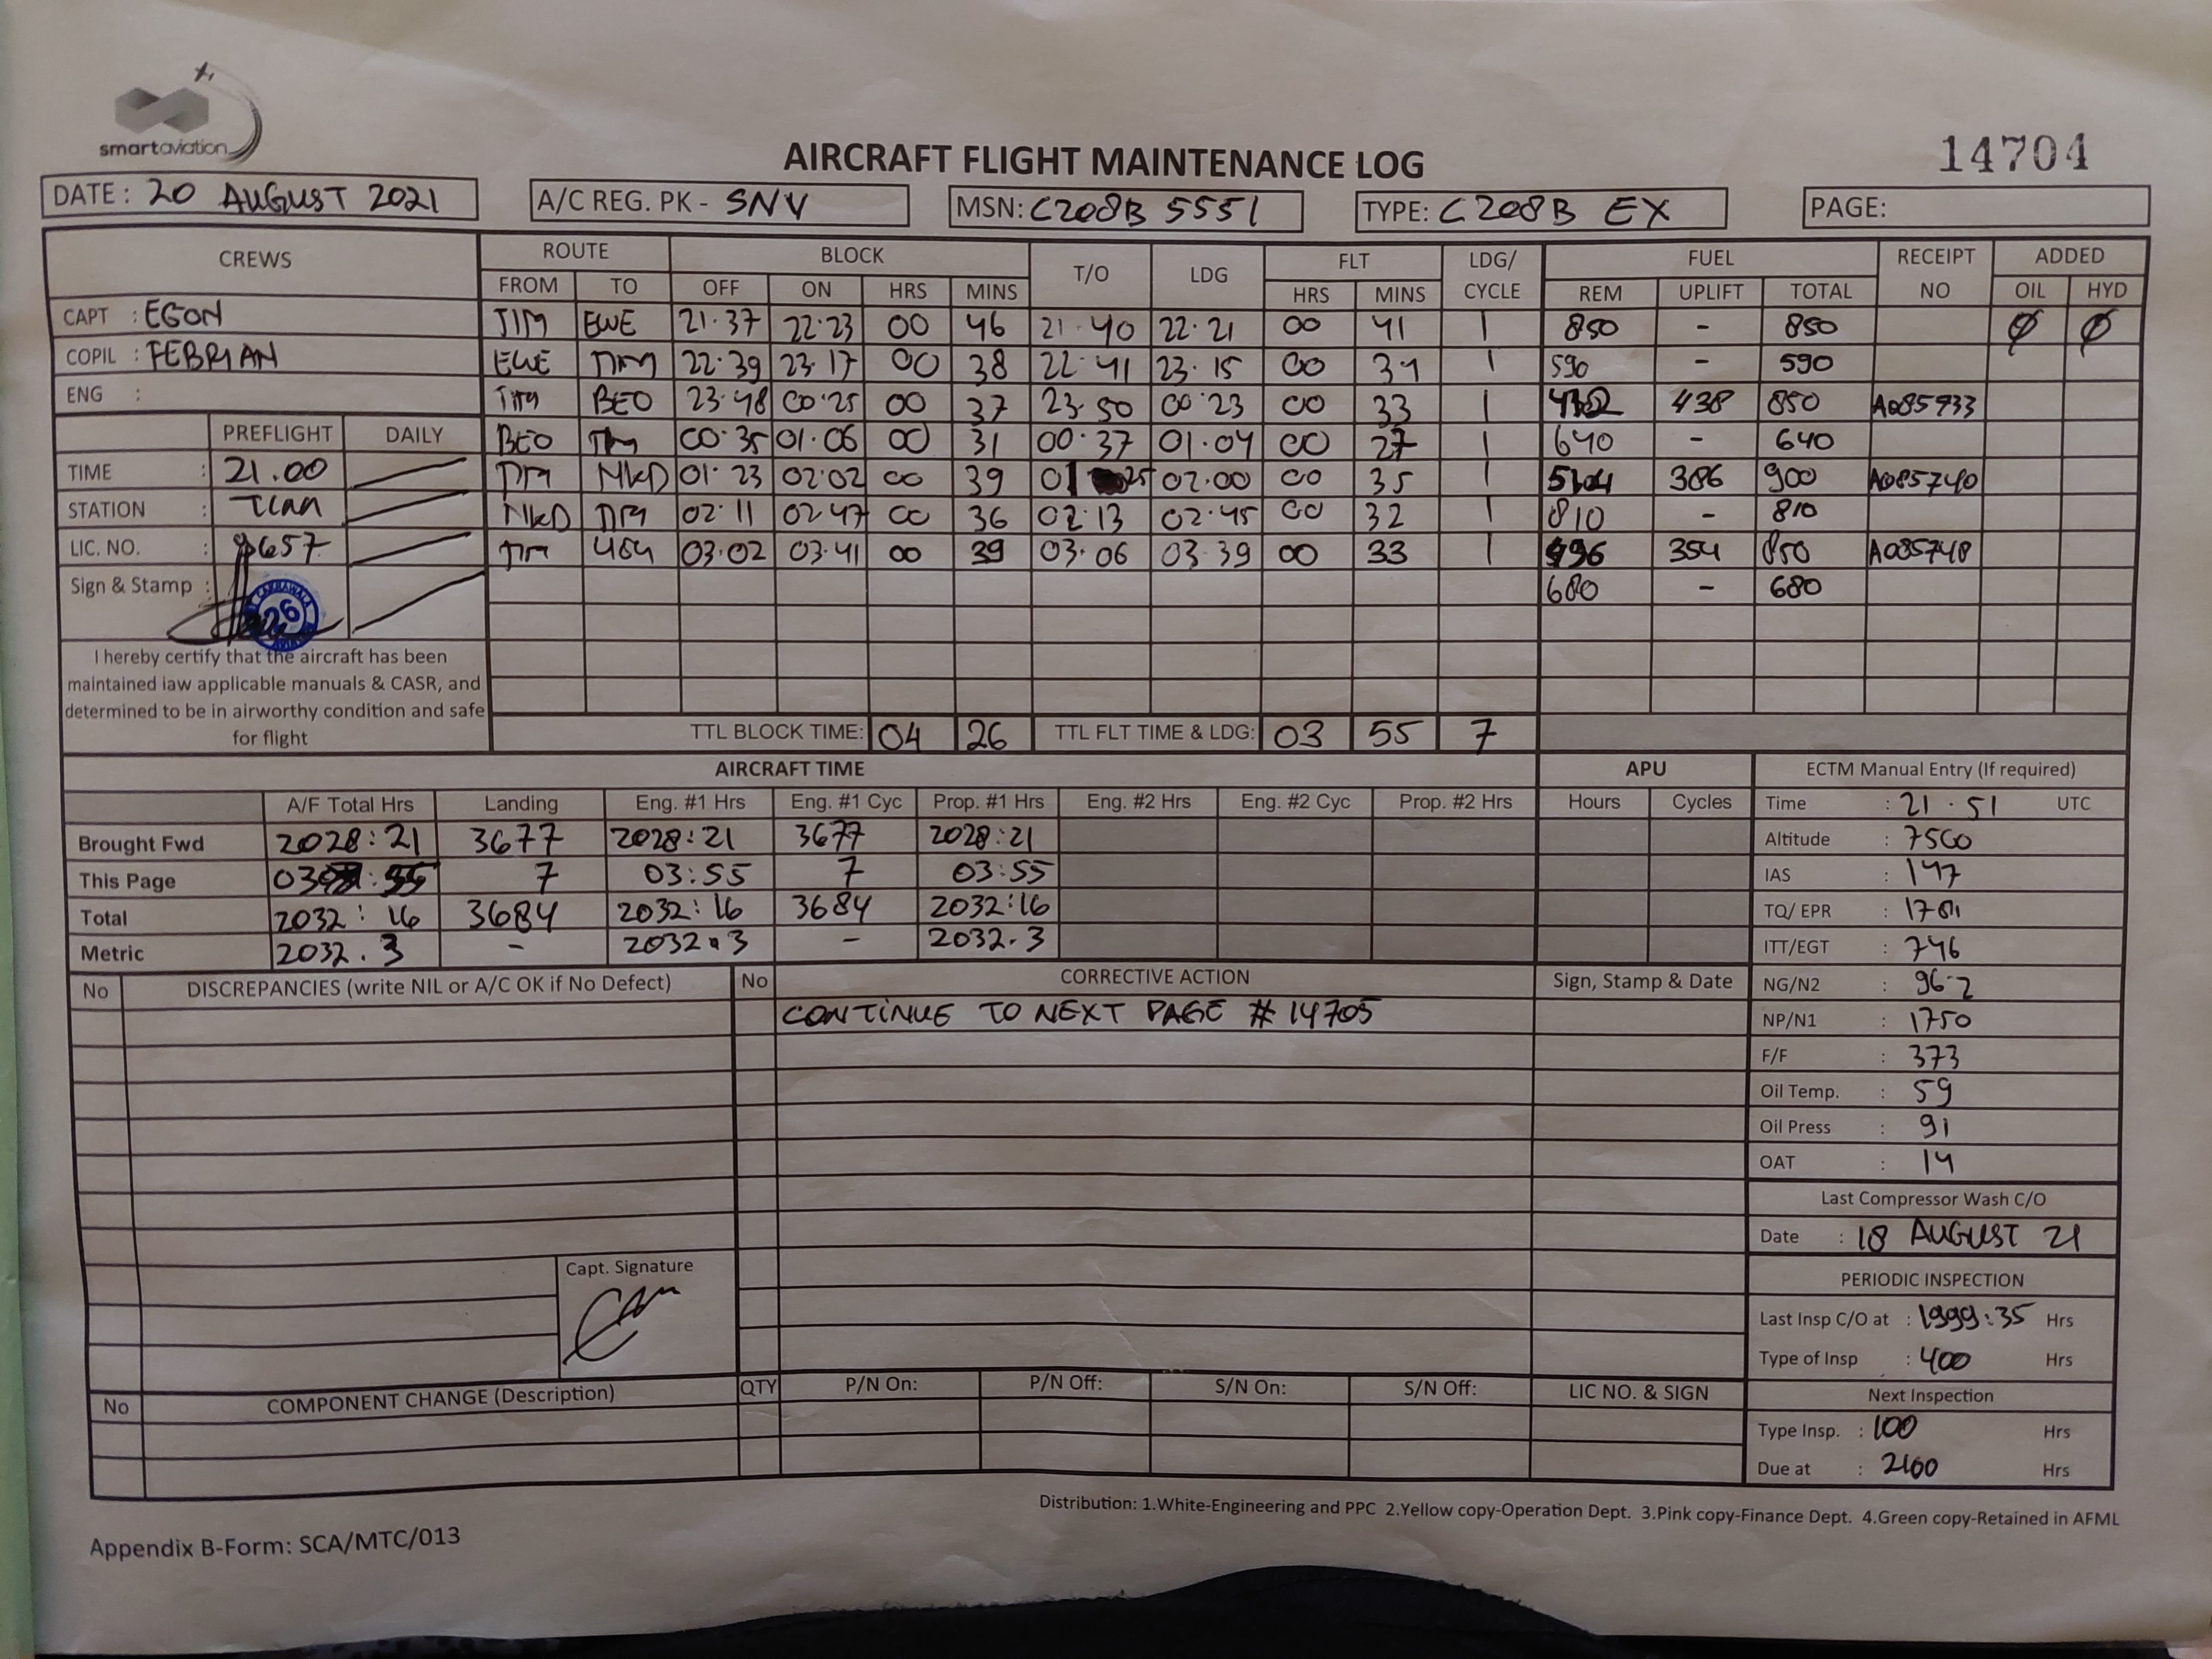 smartaviation
14704
AIRCRAFT FLIGHT MAINTENANCE LOG
DATE: 20 AUGUST 2021 A/C REG. PK - SNV MSN: C208B 5551 TYPE: C208B EX PAGE:
CREWS ROUTE BLOCK T/O LDG FLT LDG/ CYCLE FUEL RECEIPT NO ADDED
FROM TO OFF ON HRS MINS HRS MINS REM UPLIFT TOTAL OIL HYD
CAPT : EGON TIM EWE 21.37 22.23 00 46 21.40 22.21 00 41 1 850 - 850 Ø Ø
COPIL : FEBRIAN EWE TIM 22.39 23.17 00 38 22.41 23.15 00 34 1 590 - 590
ENG : TIM BEO 23.48 00.25 00 37 23.50 00.23 00 33 1 438 850 A085933
BEO TIM 00.35 01.06 00 31 00.37 01.04 00 27 1 640 - 640
PREFLIGHT DAILY
TIME : 21.00 TIM NKD 01.23 02.02 00 39 01 25 02.00 00 35 1 386 900 A085740
STATION : NKD TIM 02.11 02.47 00 36 02.13 02.45 00 32 1 810 - 810
LIC. NO. : 657 TIM 03.02 03.41 00 39 03.06 03.39 00 33 1 496 354 850 A085748
Sign & Stamp : 26 680 - 680
I hereby certify that the aircraft has been
maintained iaw applicable manuals & CASR, and
determined to be in airworthy condition and safe
for flight
TTL BLOCK TIME: 04 26 TTL FLT TIME & LDG: 03 55 7
AIRCRAFT TIME APU ECTM Manual Entry (If required)
A/F Total Hrs Landing Eng. #1 Hrs Eng. #1 Cyc Prop. #1 Hrs Eng. #2 Hrs Eng. #2 Cyc Prop. #2 Hrs Hours Cycles Time : 21.51 UTC
Brought Fwd 2028:21 3677 2028:21 3677 2028:21 Altitude : 7500
This Page 03:55 7 03:55 7 03:55 IAS : 147
Total 2032:16 3684 2032:16 3684 2032:16 TQ/ EPR :
Metric 2032.3 - 2032.3 - 2032.3 ITT/EGT : 746
No DISCREPANCIES (write NIL or A/C OK if No Defect) No CORRECTIVE ACTION Sign, Stamp & Date NG/N2 : 96.2
CONTINUE TO NEXT PAGE # 14705
NP/N1 : 1750
F/F : 373
Oil Temp. : 59
Oil Press : 91
OAT : 14
Last Compressor Wash C/O
Date : 18 AUGUST 21
Capt. Signature
PERIODIC INSPECTION
Last Insp C/O at : 1999:35 Hrs
Type of Insp : 400 Hrs
No COMPONENT CHANGE (Description) QTY P/N On: P/N Off: S/N On: S/N Off: LIC NO. & SIGN Next Inspection
Type Insp. : 100 Hrs
Due at : 2100 Hrs
Distribution: 1.White-Engineering and PPC 2.Yellow copy-Operation Dept. 3.Pink copy-Finance Dept. 4.Green copy-Retained in AFML
Appendix B-Form: SCA/MTC/013